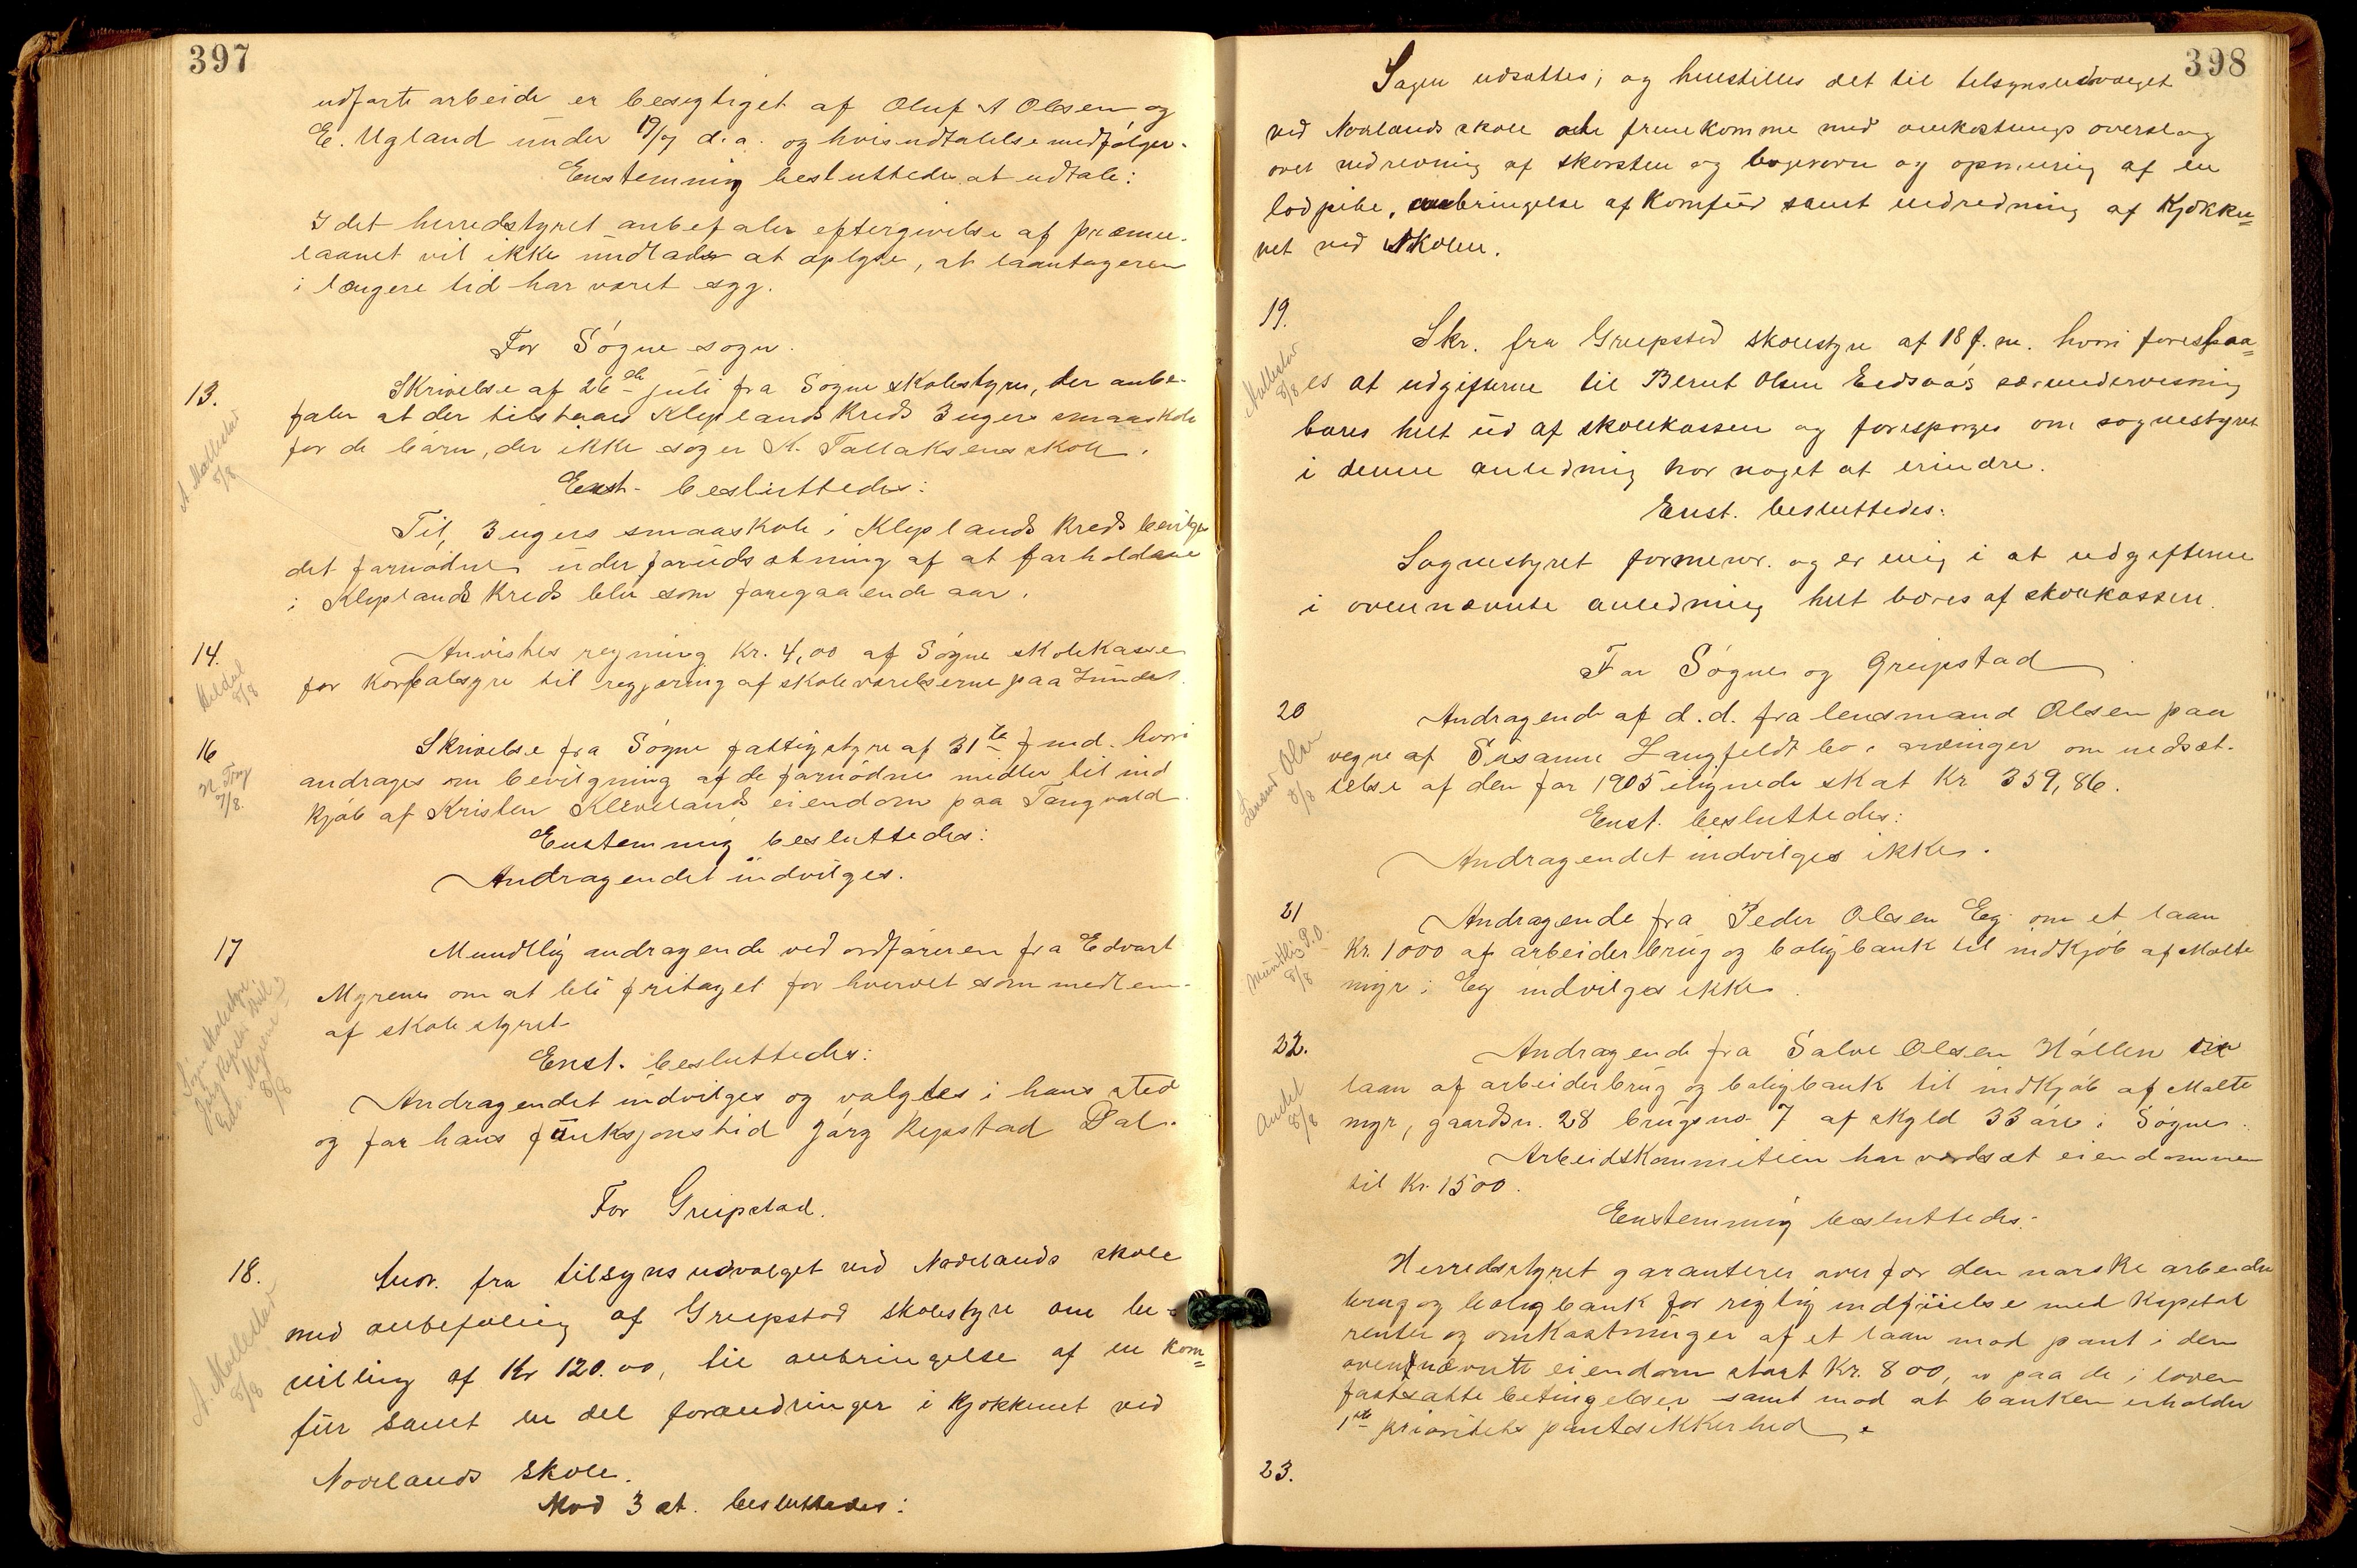 397
udførte arbeide er besigtiget af Oluf A Olsen og
E. Ugland under 19/7 d.a. og hvis udtalelse medfølger.
Enstemmig besluttedes at udtale:
I det herredstyret anbefaler eftergivelse af præmie-
laanet vil ikke undlade at oplyse, at laantageren
i længere tid har været syg.
For Søgne sogn.
13.
A Mollestad
8/8
Skrivelse af 26de juli fra Søgne skolestyre, der anbe-
faler at der tilstaaes Kleplands kreds 3 ugers smaaskole
for de børn, der ikke søger K. Tallaksens skole.
Enst. besluttedes:
Til 3 ugers smaaskole i Kleplands kreds bevilges
det fornødne under forudsætning af at forholdene
i Kleplands kreds blir som foregaaende aar.
14.
8/8
Anvistes regning kr. 4,00 af Søgne skolekasse
for karbolsyre til regjøring af skoleværelserne paa Lunde.
16
7/8.
Skrivelse fra Søgne fattigstyre af 31te f. md. hvori
andrages om bevilgning af de fornødne midler til ind
kjøb af Kristen Klevelands eiendom paa Tangvald.
Enstemmig besluttedes:
Andragendet indvilges.
17
Søgne skolestyre
Jørg Repstad Dal og
Edv. Myrene
8/8
Mundtlig andragende ved ordføreren fra Edvart
Myrene om at bli fritaget for hvervet som medlem
af skolestyret
Enst. besluttedes:
Andragendet indvilges og valgtes i hans sted
og for hans funksjonstid Jørg Repstad Dal.
For Greipstad.
18.
A. Mollestad
8/8
Andr. fra tilsynsudvalget ved Nodelands skole
med anbefaling af Greipstad skolestyre om be-
villing af Kr 120.00, til anbringelse af en kom=
für samt en del forandringer i kjøkkenet ved
Nodelands skole.
Mod 3 st. besluttedes:
398
Sagen udsættes; og henstilles det til tilsynsudvalget
ved Nodlands skole at fremkomme med omkostnings overslag
over nedrivning af skorsten og bagerovn og opmuring af en
lodpibe, anbringelse af Komfür samt indredning af Kjøkke=
net ved Skolen.
19.
Mollestad
8/8
Skr. fra Greipsted skolestyre af 18 f. m. hvori foreslaa=
es at udgifterne til Bernt Olsen Eidsaa's særundervisning
bæres helt ud af skolekassen og forespørges om sognestyret
i denne anledning har noget at erindre.
Enst. besluttedes:
Sognestyret formener og er enig i at udgifterne
i ovennævnte anledning helt bæres af skolekassen.
For Søgne og Greipstad
20
Lensmd Olsen
8/8
Andragende af d.d. fra lensmand Olsen paa
vegne af Susanne Langfeldt bo's arvinger om nedsæt-
telse af den for 1905 ilignede skat Kr 359,86.
Enst. besluttedes:
Andragendet indvilges ikke.
21
Muntlig P.O.
8/8
Andragende fra Peder Olsen Eg om et laan
Kr. 1000 af arbeiderbrug og boligbank til indkjøb af Molte
myr i Eg indvilges ikke.
22.
Andel
8/8
Andragende fra Salve Olsen Hóllen om
laan af arbeiderbrug og boligbank til indkjøb af Molte
myr, gaardsn. 28 brugsno 7 af skyld 33 øre i Søgne.
Arbeidskommiteen har værdsat eiendommen
til Kr. 1500.
Enstemmig besluttedes:
Herredstyret garanterer overfor den norske arbeider
brug og boligbank for rigtig indfrielse med kapital
renter og omkostninger af et laan mod pant i den
ovennævnte eiendom stort Kr. 800, paa de i loven
fastsatte betingelser samt mod at banken erholder
1ste prioritets pantesikkerhed.
23.